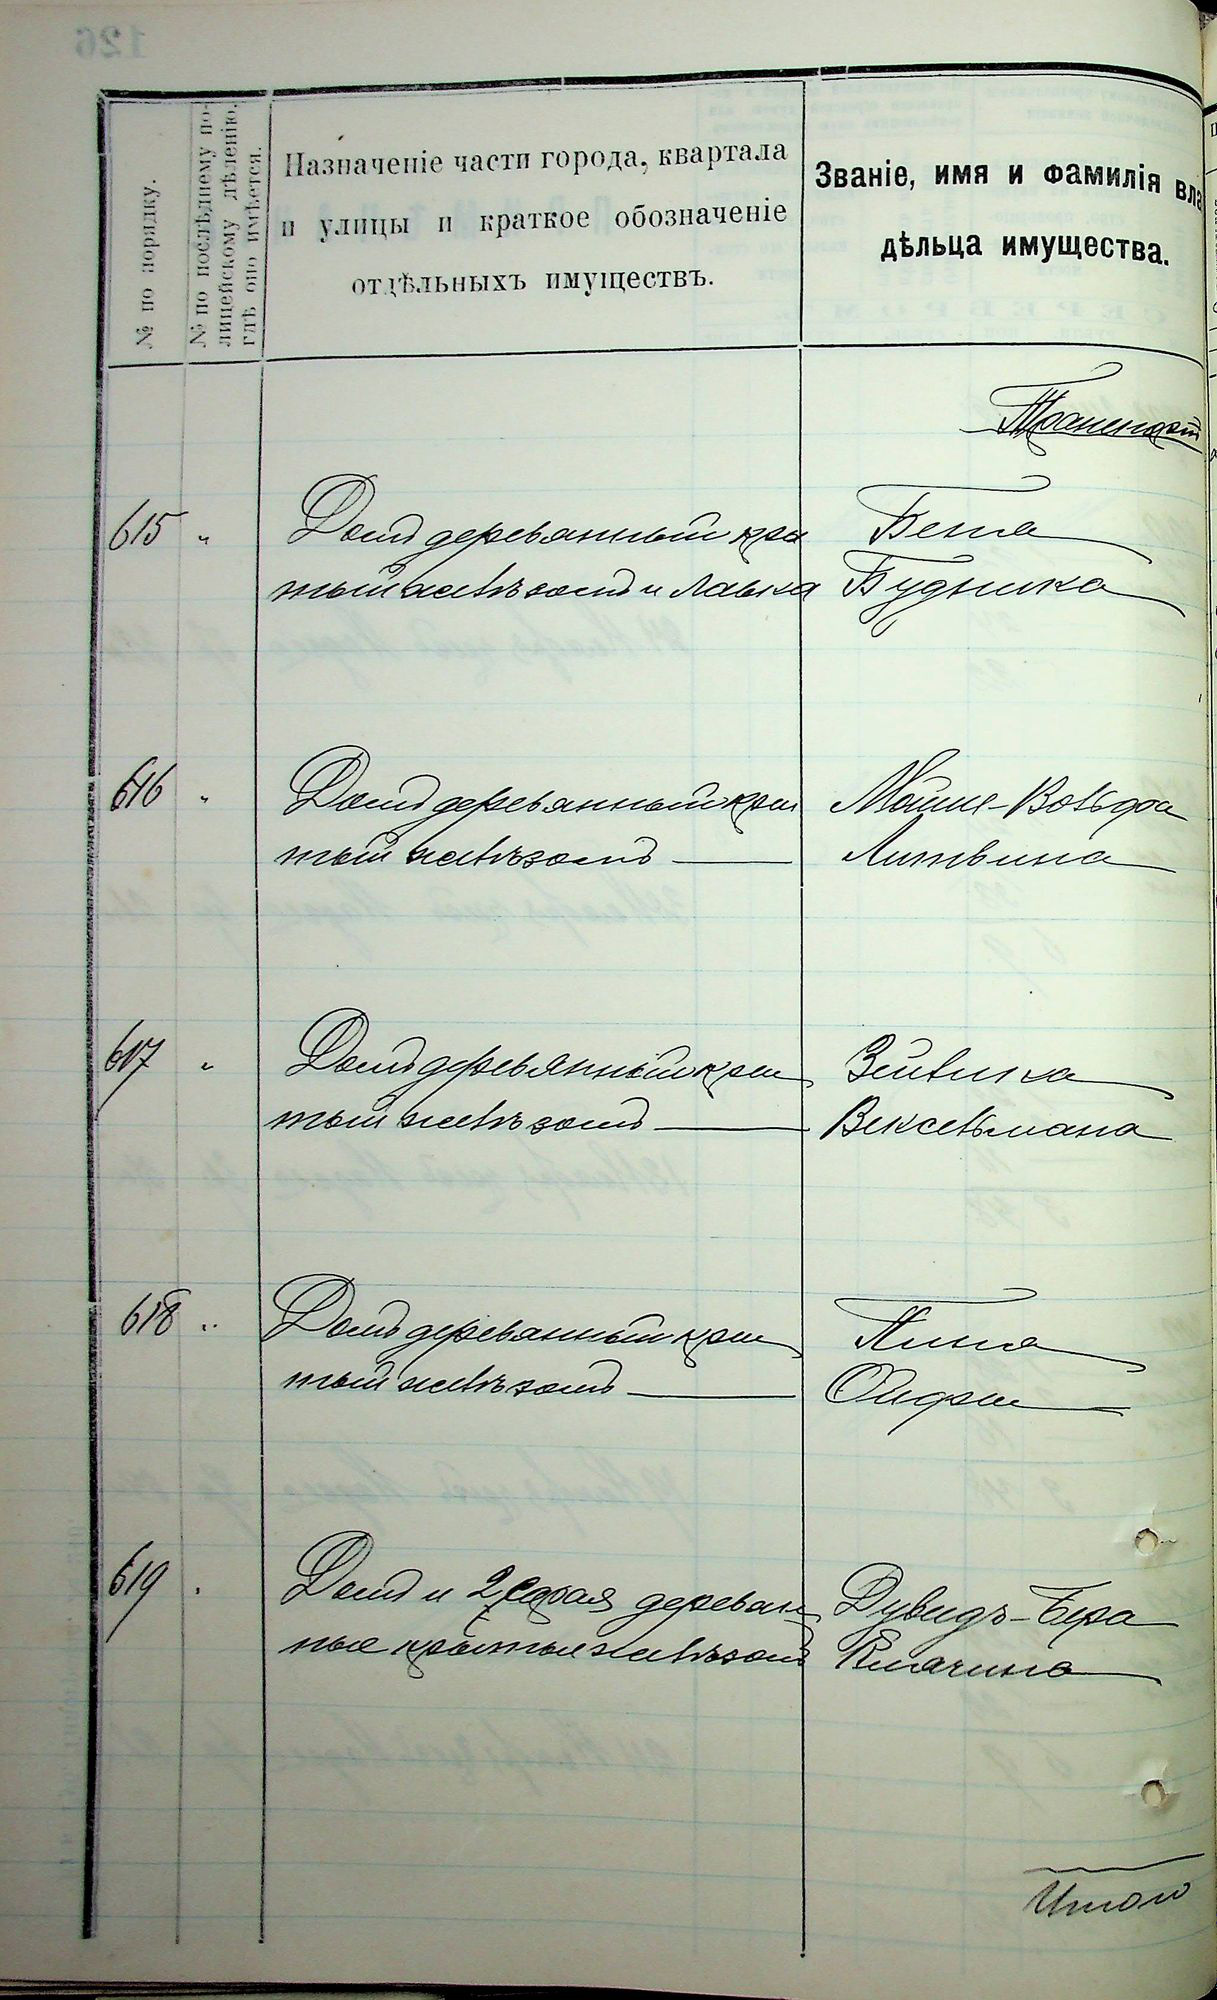 № по порядку.
№ по послѣднему по-
лицейскому дѣленію,
гдѣ оно имѣется.
Назначеніе части города, квартала
и улицы и краткое обозначеніе
отдѣльныхъ имуществъ.
Званіе, имя и фамилія вла
дѣльца имущества.
Транспортъ
615 " Домъ деревянный кры Бена
тый желѣзомъ и лавка Будника
616 " Домъ деревянный кры Мойше-Вольфа
тый желѣзомъ — Литвина
617 " Домъ деревянный кры Зейлика
тый желѣзомъ — Вексельмана
618 " Домъ деревянный кры
тый желѣзомъ —
619 " Домъ и 2 сарая деревян Дувидъ-Бера
ные крытые желѣзомъ
Итого